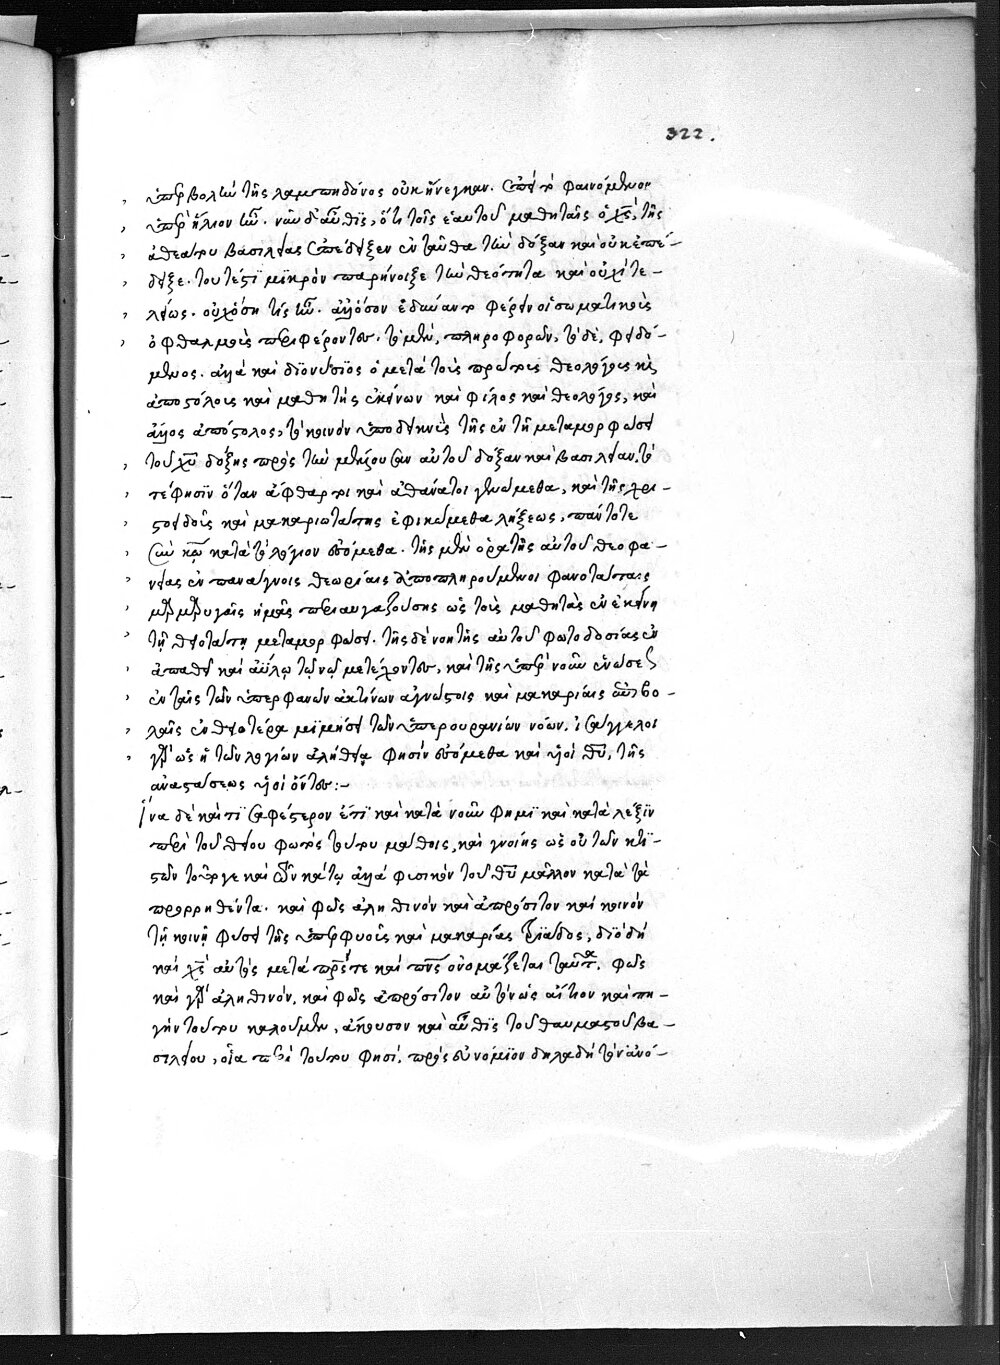 322.
ὑπερβολὴν τῆς λαμπηδόνος οὐκ ἤνεγκαν. ἐπὶ τὸ φαινόμενον
ὑπὲρ ἥλιον ἦν. νῦν δ' αὖθις, ὅτι τοῖς ἑαυτοῦ μαθηταῖς ὁ χς, τῆς
ἀθεάτου βασιλείας ὑπέδειξεν ἐνταῦθα τὴν δόξαν καὶ οὐκ ἐπέ-
δειξε. τουτέστι μικρὸν παρήνοιξε τὴν θεότητα καὶ οὐχὶ τε-
λείως. οὐχ ὅση τίς ἦν. ἀλλ' ὅσον ἐδύναντο φέρειν οἱ σωματικοὺς
ὀφθαλμοὺς περιφέροντες. τὸ μὲν, πληροφορῶν, τὸ δὲ, φειδό-
μενος. ἀλλὰ καὶ διονύσιος ὁ μετὰ τοὺς πρώτους θεολόγους καὶ
ἀποστόλους καὶ μαθητὴς ἐκείνων καὶ φίλος καὶ θεολόγος, καὶ
ἅγιος ἀπόστολος, τὸ κοινὸν ὑποδεικνὺς τῆς ἐν τῇ μεταμορφώσει
τοῦ χυ δόξης πρὸς τὴν μένουσαν αὐτοῦ δόξαν καὶ βασιλείαν. τό
τε φησὶν ὅταν ἄφθαρτοι καὶ ἀθάνατοι γενώμεθα, καὶ τῆς χρι-
στοειδοῦς καὶ μακαριωτάτης ἐφικώμεθα λήξεως, πάντοτε
σὺν κω κατὰ τὸ λόγιον ἐσόμεθα. τῆς μὲν ὁρατῆς αὐτοῦ θεοφα-
νείας ἐν πανάγνοις θεωρίαις ἀποπληρούμενοι φανοτάταις
μαρμαρυγαῖς ἡμᾶς περιαυγαζούσης ὡς τοὺς μαθητὰς ἐν ἐκείνῃ
τῇ θειοτάτῃ μεταμορφώσει. τῆς δὲ νοητῆς αὐτοῦ φωτοδοσίας ἐν
ἀπαθεῖ καὶ ἀΰλῳ τῷ νῷ μετέχοντες, καὶ τῆς ὑπὲρ νοῦν ἑνώσεως
ἐν ταῖς τῶν ὑπερφανῶν ἀκτίνων ἀγνώστοις καὶ μακαρίαις ἐπιβο-
λαῖς ἐν θειοτέρᾳ μιμήσει τῶν ὑπερουρανίων νοῶν. ἰσάγγελοι
γὰρ ὡς ἡ τῶν λογίων ἀλήθειά φησιν ἐσόμεθα καὶ υἱοὶ θυ, τῆς
ἀναστάσεως υἱοὶ ὄντες:-
Ἵνα δὲ καί τι σαφέστερον ἔτι καὶ κατὰ νοῦν φημὶ καὶ κατὰ λέξιν
περὶ τοῦ θείου φωτὸς τούτου μάθοις, καὶ γνοίης ὡς οὐ τῶν κτι-
στῶν τοῦτό γε καὶ τῶν κάτω ἀλλὰ φυσικὸν τοῦ θυ μᾶλλον κατὰ τὰ
προρρηθέντα. καὶ φῶς ἀληθινὸν καὶ ἀπρόσιτον καὶ κοινὸν
τῇ κοινῇ φύσει τῆς ὑπερφυοῦς καὶ μακαρίας τριάδος, διὸ δὴ
καὶ χς αὐτὸς μετὰ πρς τε καὶ πνς ὀνομάζεται ταῦτα. φῶς
καὶ γὰρ ἀληθινόν, καὶ φῶς ἀπρόσιτον αὐτὸν ὡς αἴτιον καὶ πη-
γὴν τούτου καλοῦμεν, ἄκουσον καὶ αὖθις τοῦ θαυμαστοῦ βα-
σιλείου, οἷα περὶ τούτου φησί. πρὸς εὐνόμιον δηλαδὴ τὸν ἀνό-